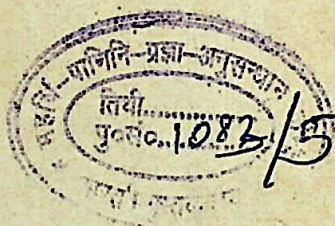 महर्षि-पाणिनि-प्रज्ञा-अनुसन्धान
तिथी..............
पु०सं० 1083/5